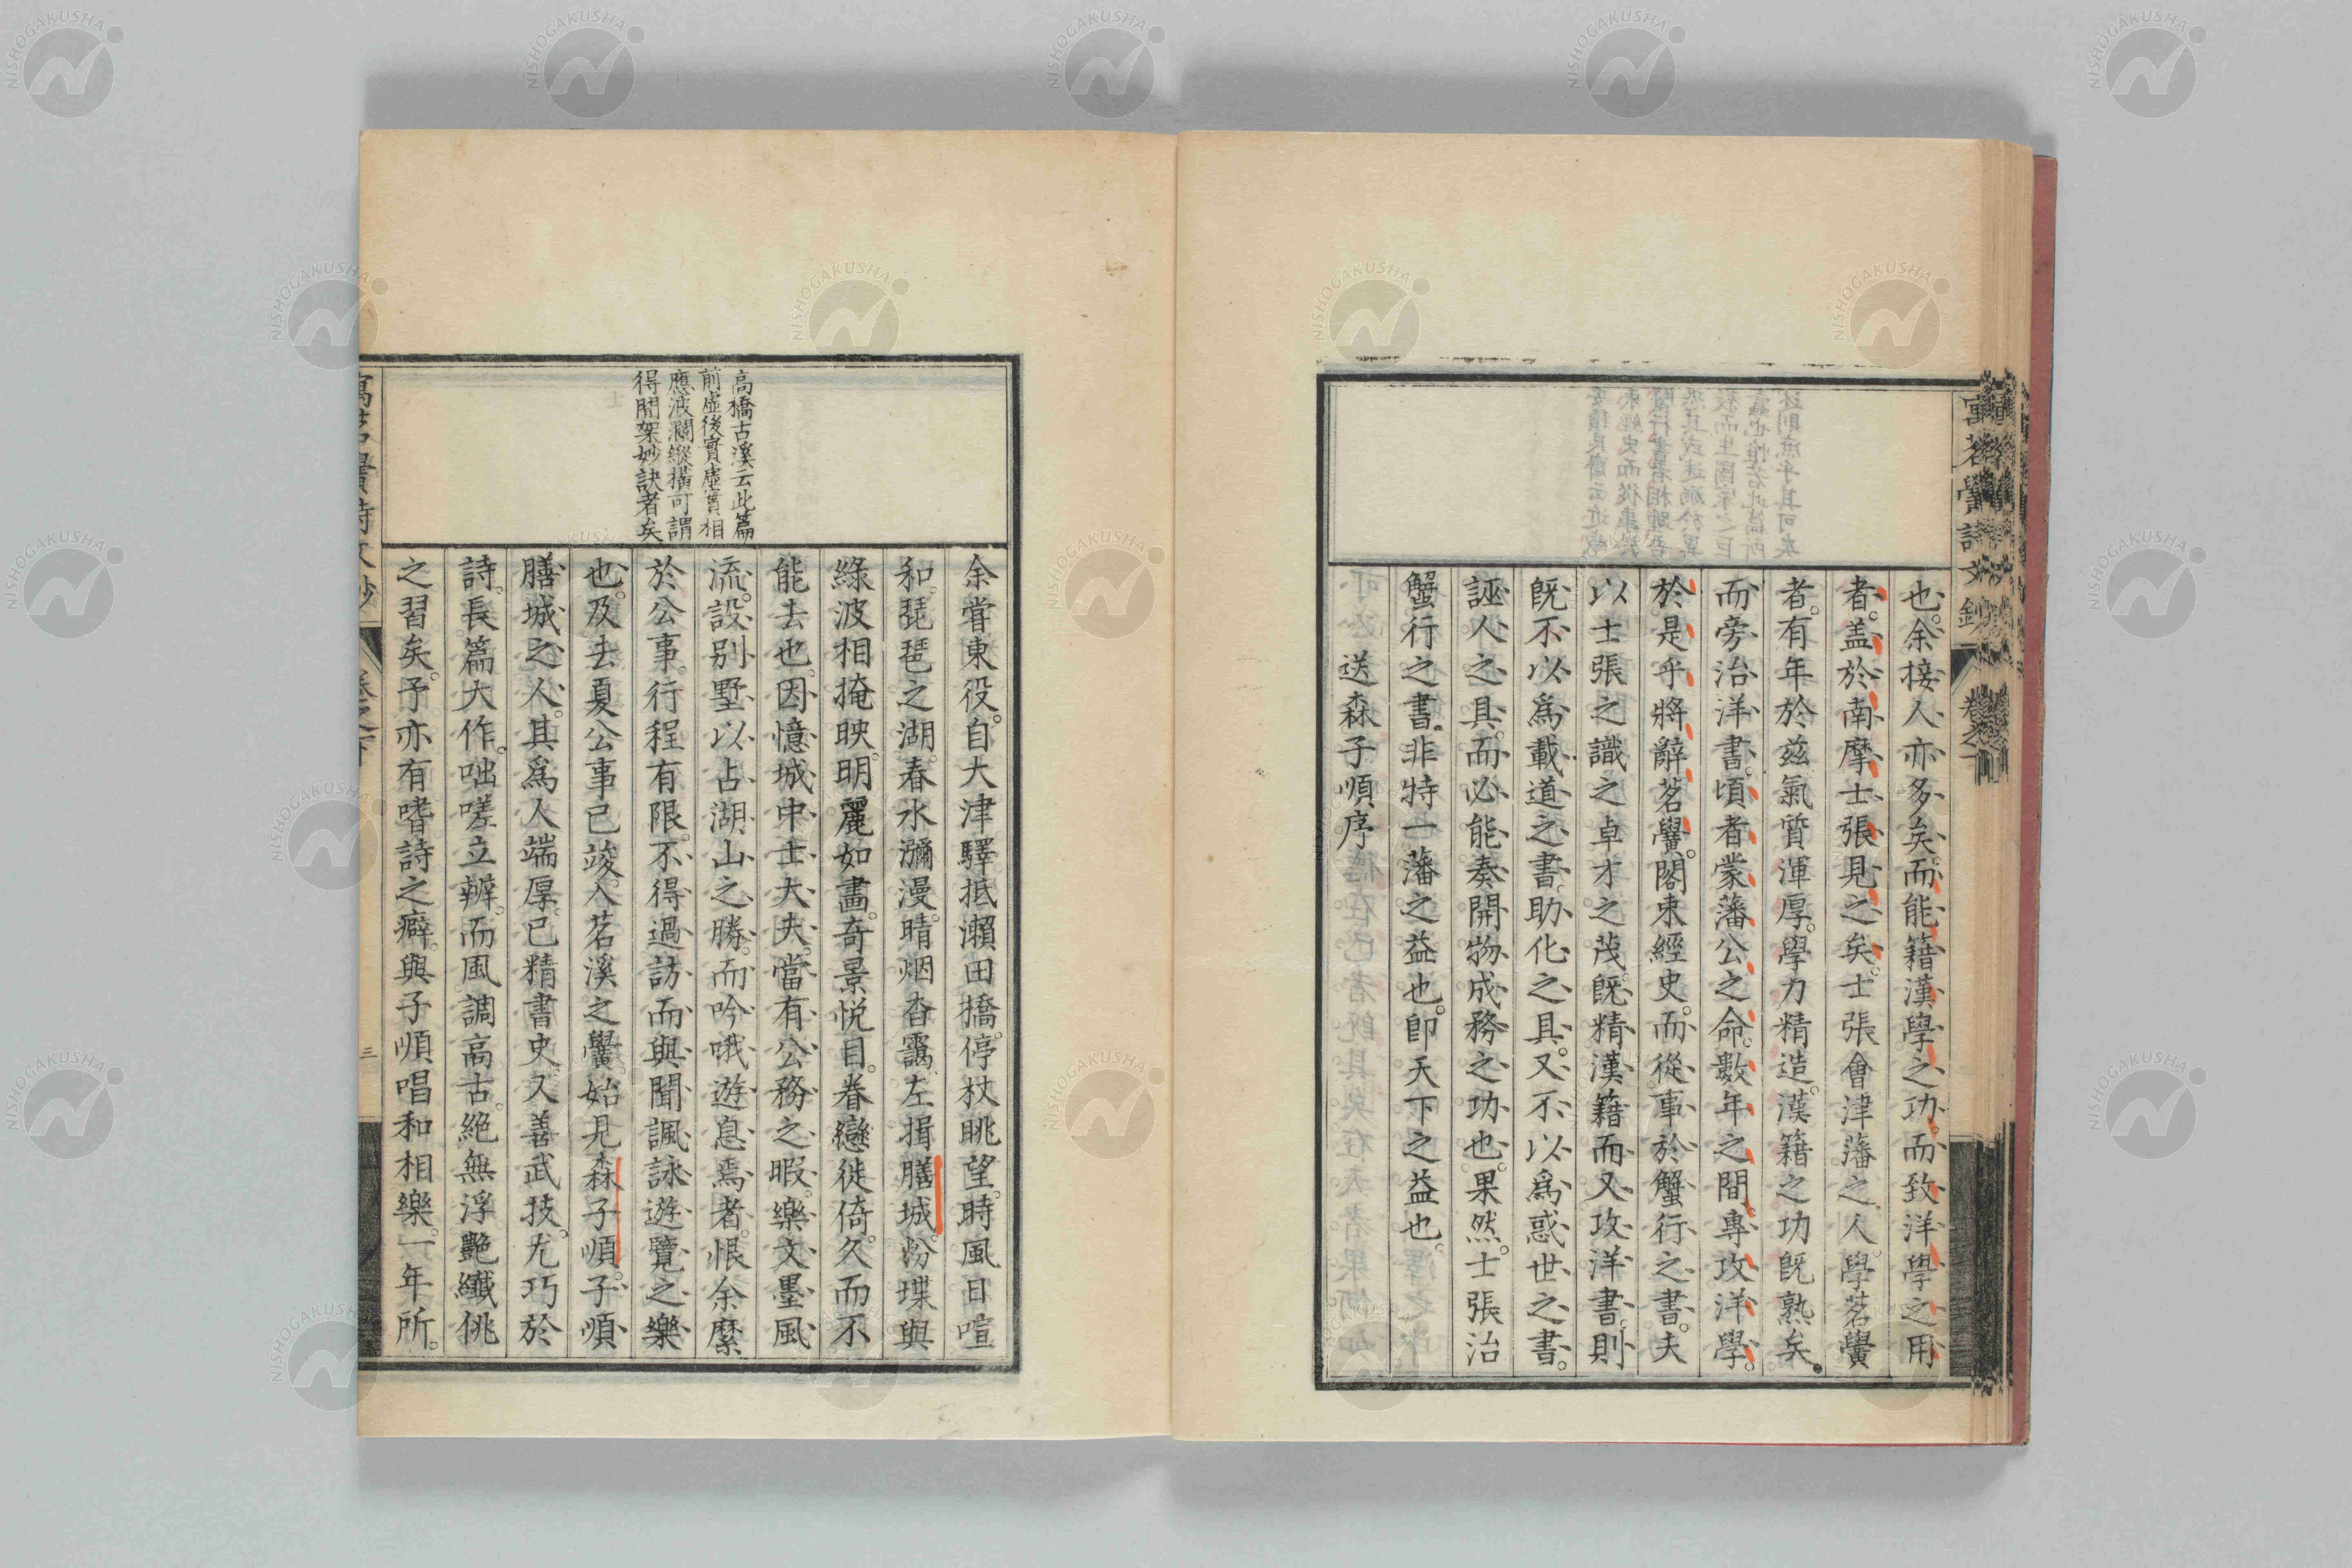 也。余接人亦多矣。而能籍漢學之功。而致洋學之用
者。盖於南摩士張見之矣。士張會津藩之人。學茗黌
者。有年於茲氣質渾厚。學力精造。漢籍之功既熟矣。
而旁治洋書。頃者蒙藩公之命。數年之間專攻洋學。
於是乎將辭茗黌。閣束經史。而從事於蟹行之書。夫
以士張之識之卓才之茂。既精漢籍而又攻洋書。則
既不以爲載道之書。助化之具。又不以爲惑世之書。
誣人之具。而必能奏開物成務之功也。果然。士張治
蟹行之書。非特一藩之益也。卽天下之益也。
送森子順序
高橋古溪云此篇
前虛後實虛實相
應波瀾縱橫可謂
得閒架妙訣者矣
余嘗東役。自大津驛抵瀨田橋。停杖眺望。時風日喧
和。琵琶之湖。春水瀰漫。晴烟杳靄。左揖膳城。粉堞與
綠波相掩映。明麗如畵。奇景悅目。眷戀徙倚。久而不
能去也。因憶城中士大夫。當有公務之暇。樂文墨風
流。設別墅以占湖山之勝。而吟哦遊息焉者。恨余縻
於公事。行程有限。不得過訪而與聞諷詠遊覽之樂
也。及去夏公事已竣。入茗溪之黌。始見森子順。子順
膳城之人。其爲人端厚。已精書史。又善武技。尤巧於
詩。長篇大作。咄嗟立辦。而風調高古。絕無浮艷纖佻
之習矣。予亦有嗜詩之癖。與子順唱和相樂。一年所。